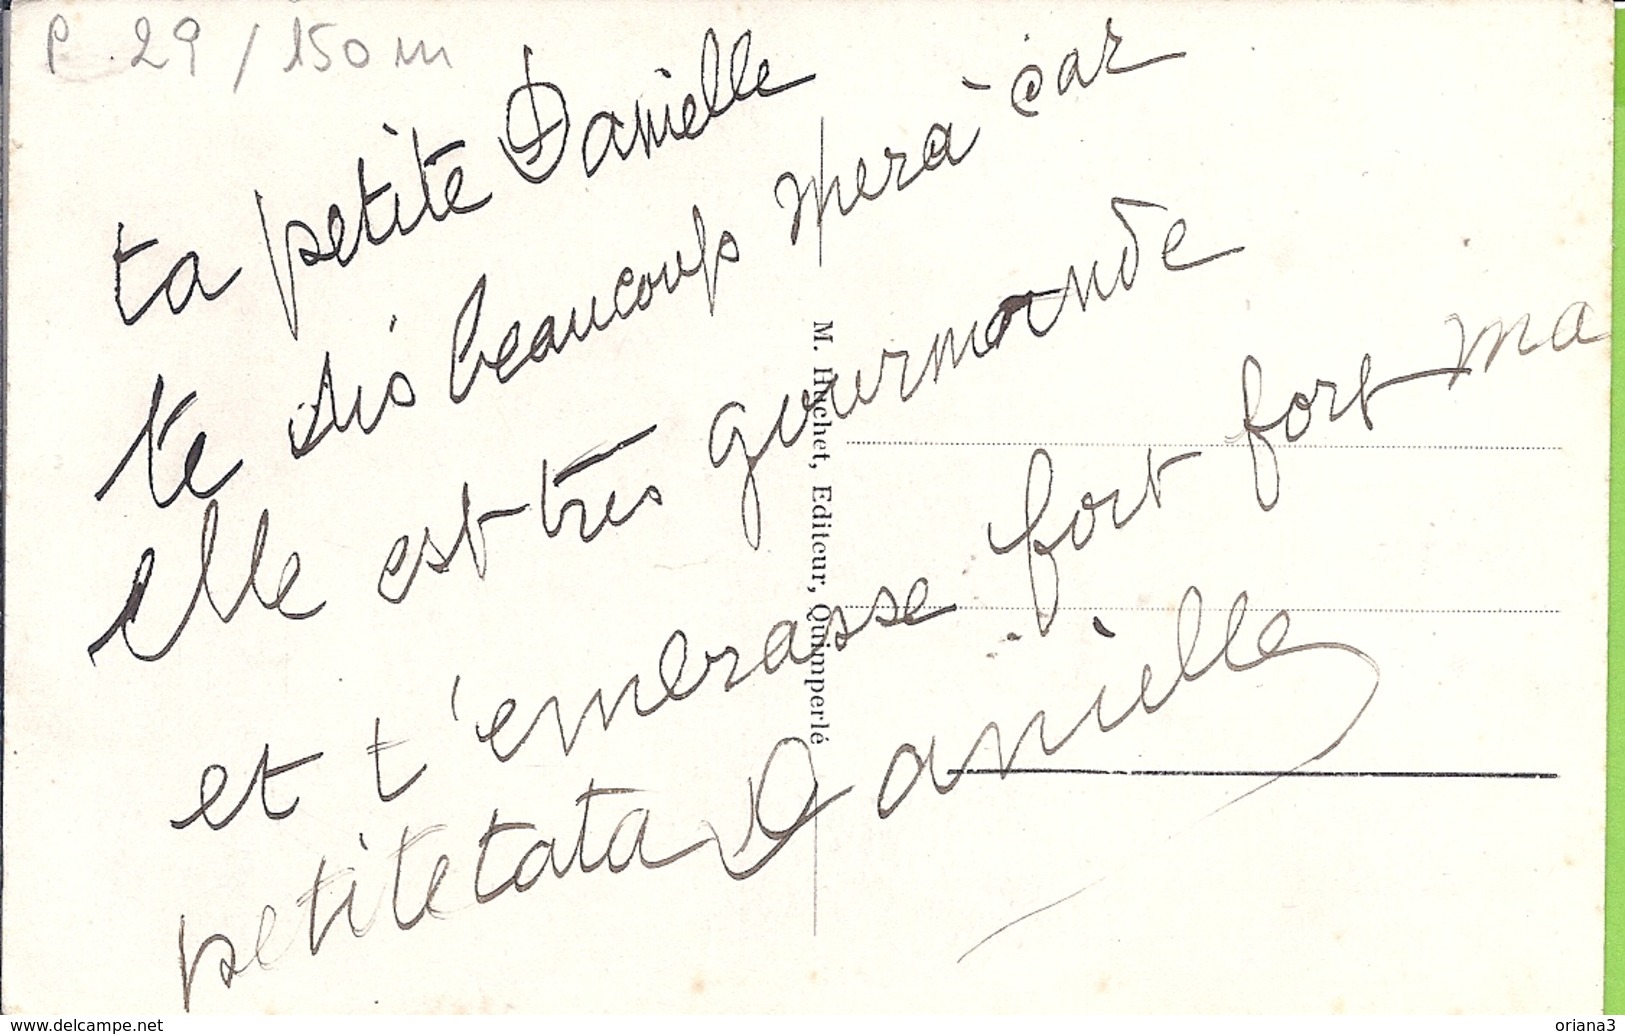 P. 29 / 150 m
ta petite Danielle
te dis beaucoup merci car
elle est très gourmande
et t'embrasse fort fort ma
petite tata Danielle
M. Huchet, Editeur, Quimperlé
www.delcampe.net
oriana3